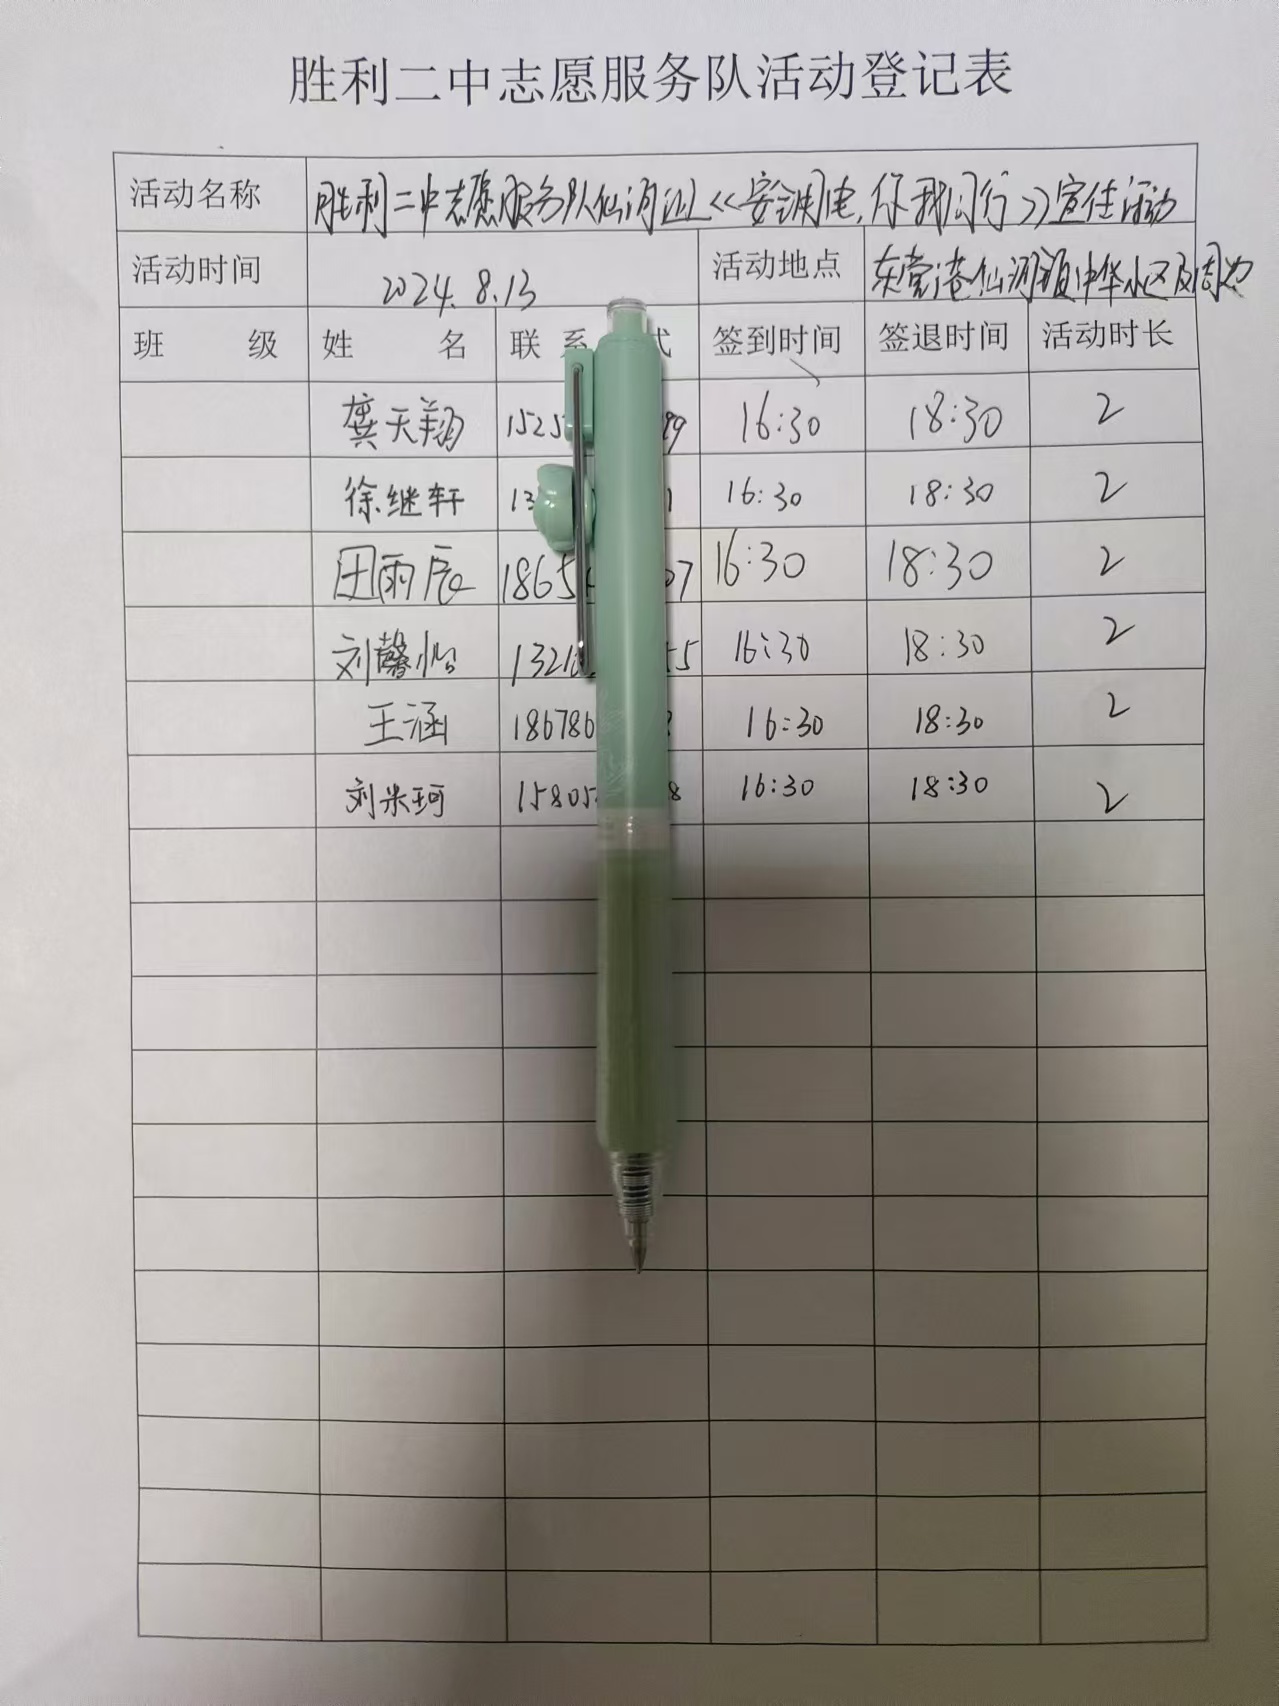 胜利二中志愿服务队活动登记表
活动名称 胜利二中志愿服务队仙河汕《安全用电,你我同行》宣传活动
活动时间 2024.8.13 活动地点 东营港仙河镇中华小区及周边
班 级 姓 名 联 系 式 签到时间 签退时间 活动时长
龚天翔 1525 99 16:30 18:30 2
徐继轩 13 1 16:30 18:30 2
田雨辰 1865 07 16:30 18:30 2
刘馨怡 1321 55 16:30 18:30 2
王涵 186786 16:30 18:30 2
刘米珂 15805 8 16:30 18:30 2